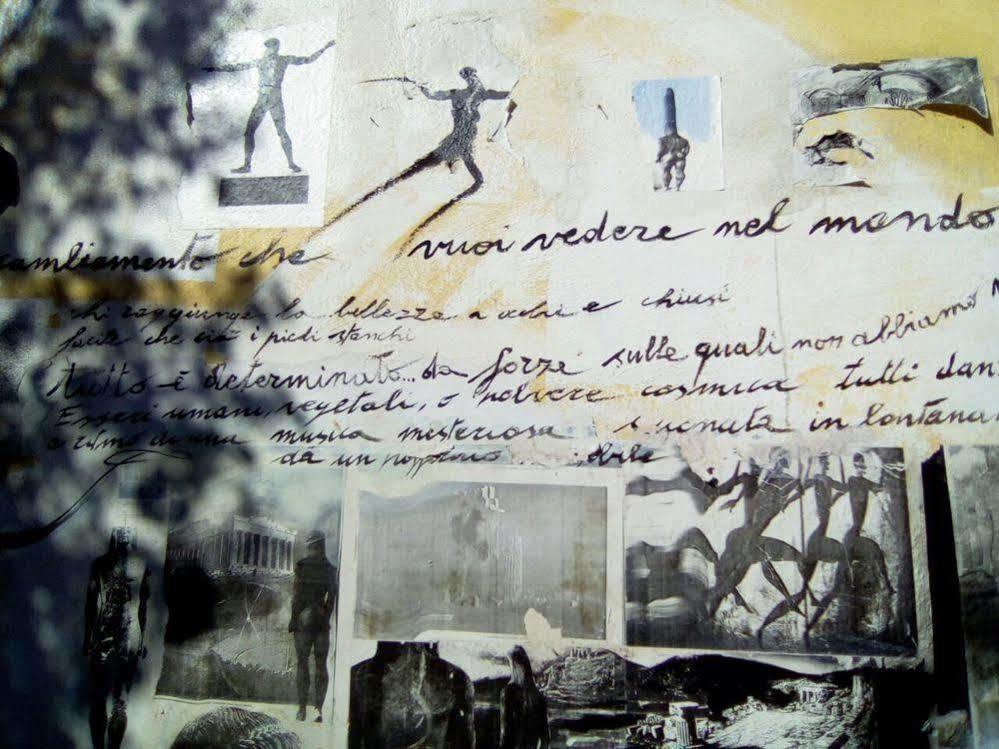 cambiamento che vuoi vedere nel mondo
chi raggiunge la bellezza a e chiusi
facile che i piedi stanchi
tutto è determinato... da forze sulle quali non abbiamo
Esseri umani, vegetali, o polvere cosmica tutti dan
a ritmo di una musica misteriosa suonata in lontana
da un